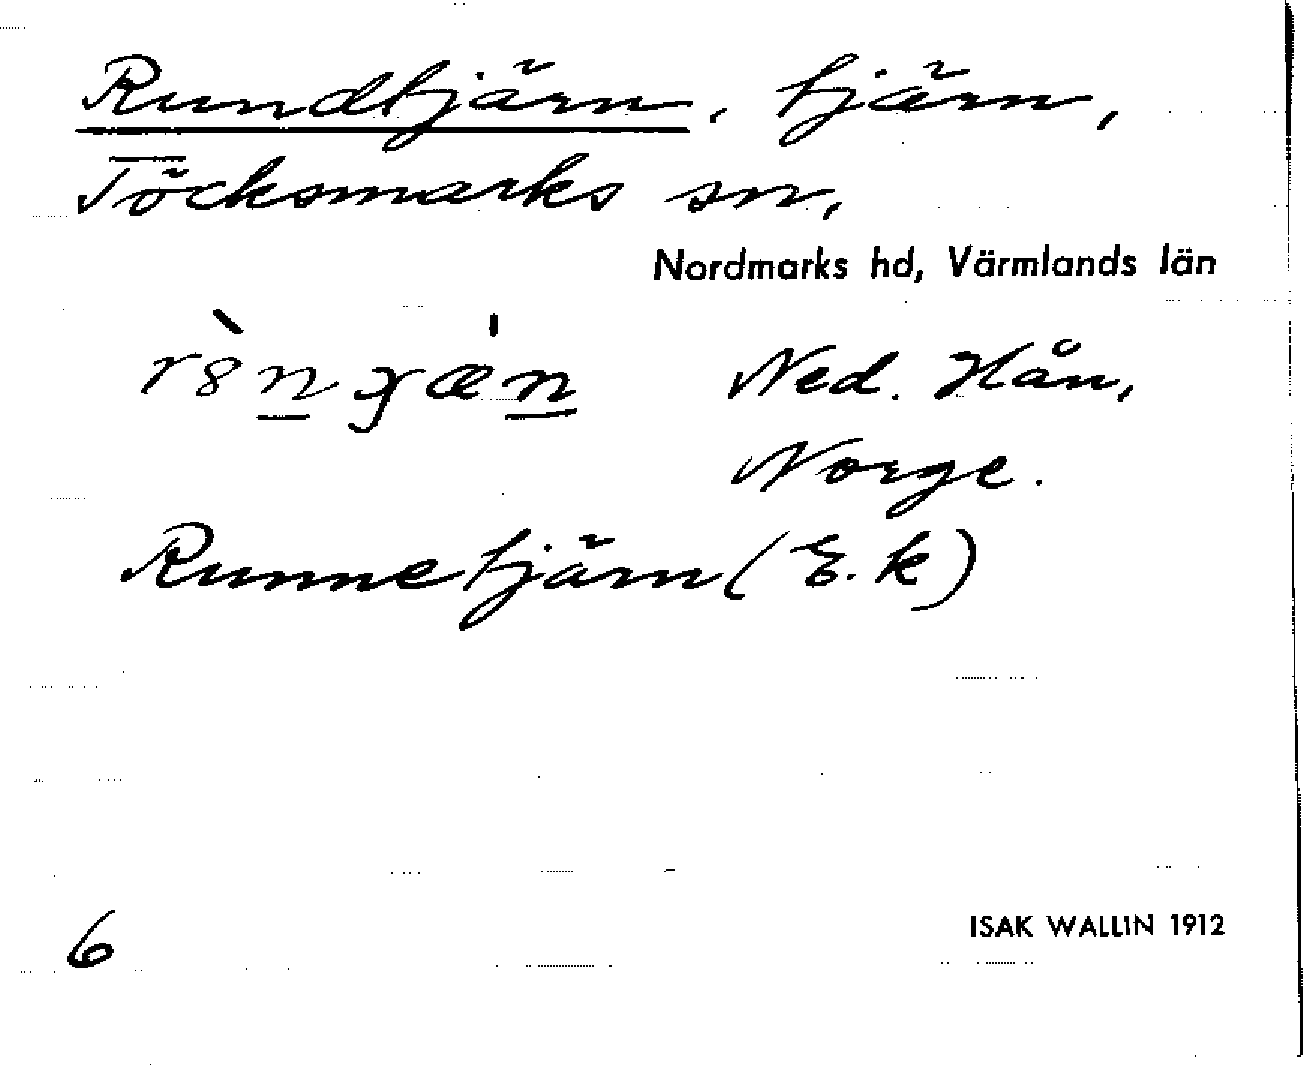 Rundtjärn, tjärn,
Töcksmarks sn,
Nordmarks hd, Värmlands län
Ned. Hån,
Norge.
Runnetjärn (E.k)
6
ISAK WALLIN 1912